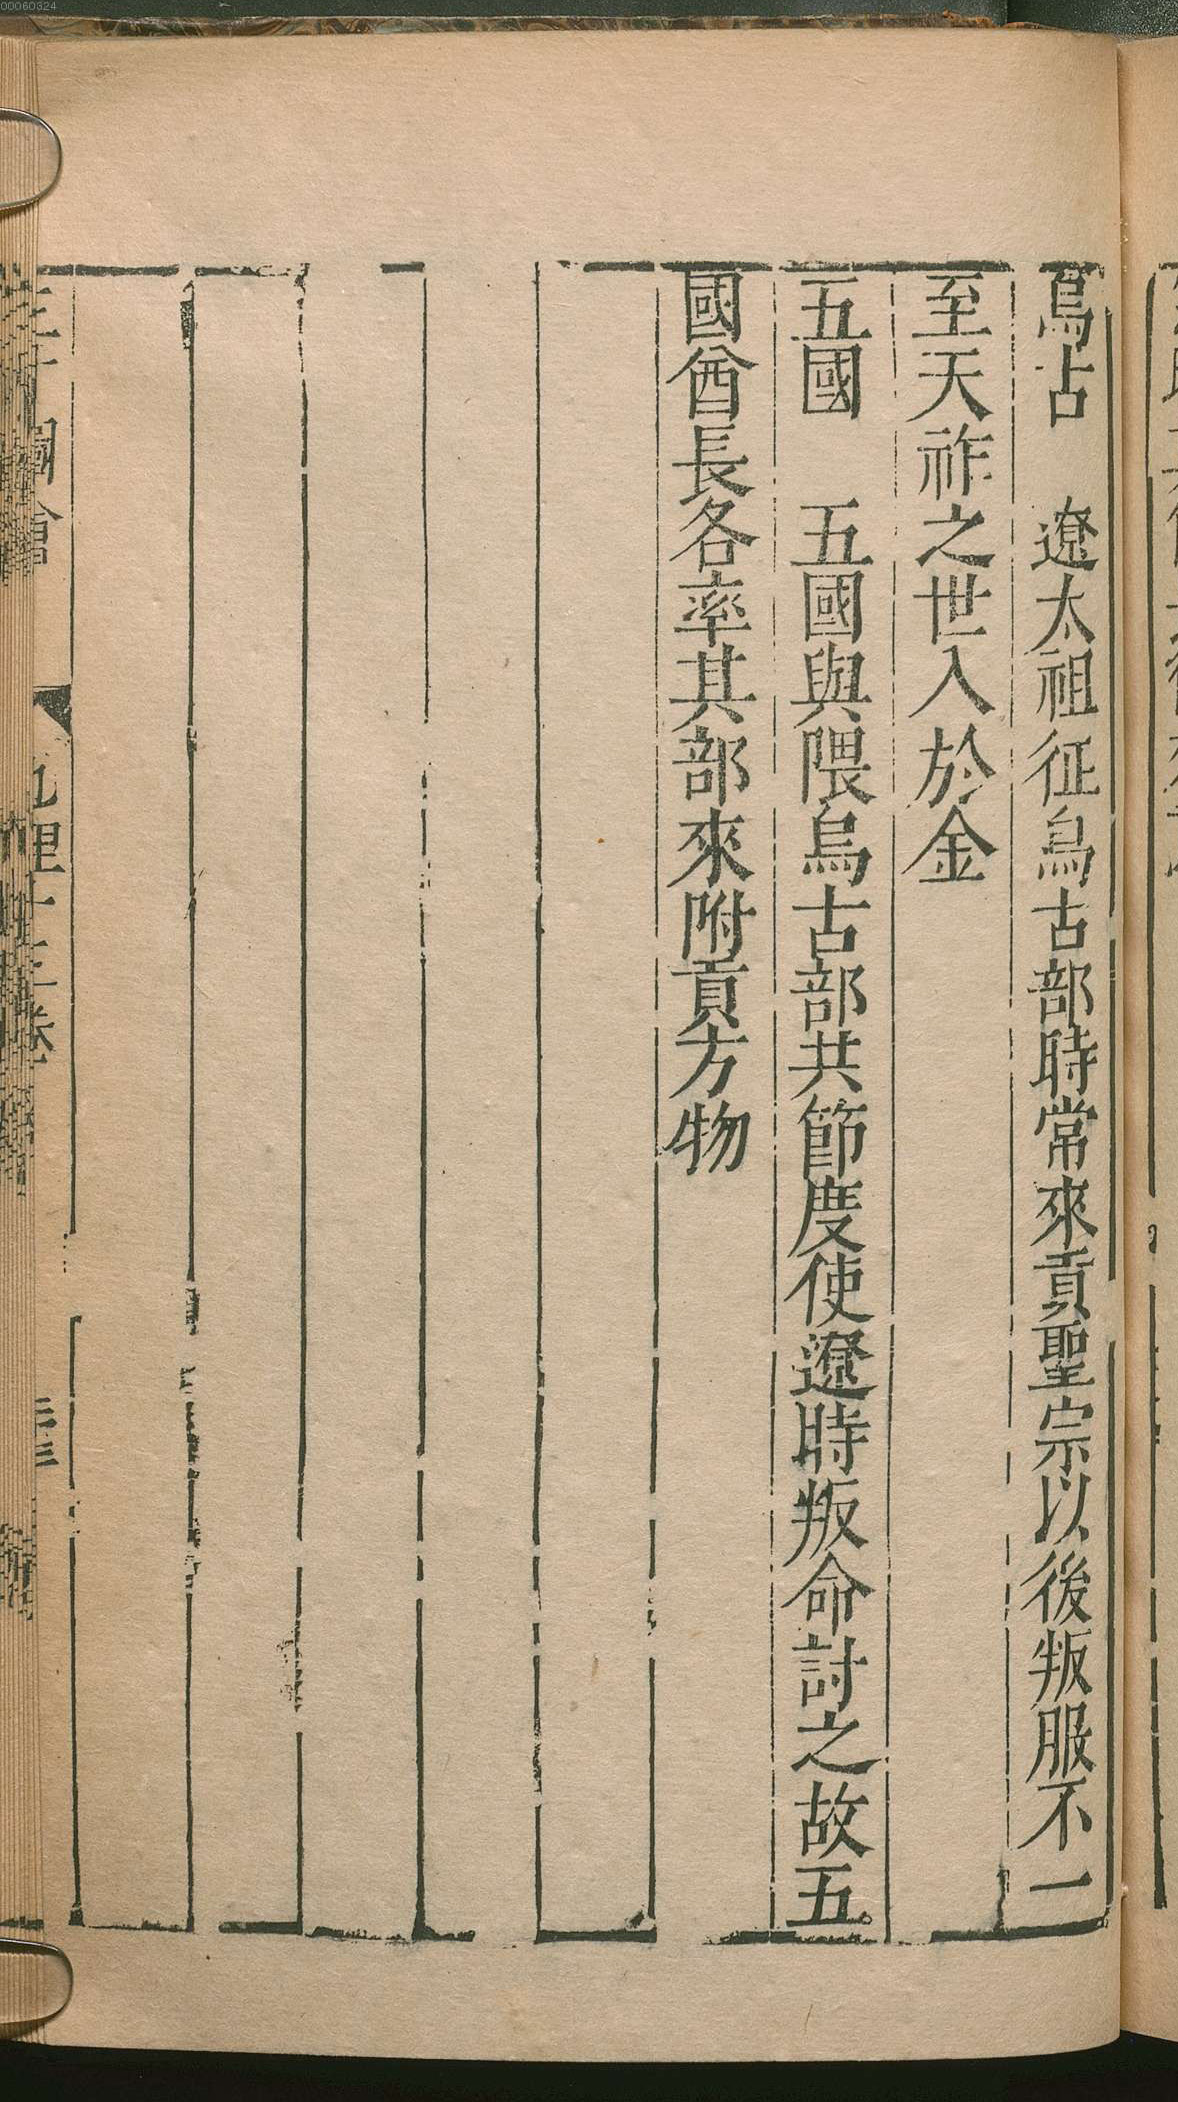 烏占　遼太祖征烏古部時常來貢聖宗以後叛服不一
至天祚之世入於金
五國　五國與隈烏古部共節度使遼時叛命討之故五
國酋長各率其部來附貢方物
00060324